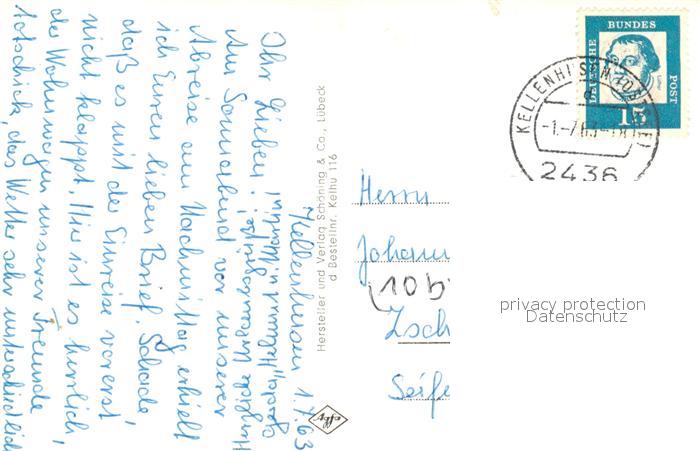 Kellenhusen 1.7.63
Ihr Lieben!
Am Sonnabend vor unserer
Abreise am Nachmittag erhielt
ich Euren lieben Brief. Schade,
daß es mit der Einreise vorerst
nicht klappt. Hier ist es herrlich,
der Wohnwagen unserer Freunde
totschick, das Wetter sehr unterschiedlich
Hersteller und Verlag Schöning & Co., Lübeck
Bestellnr. Kelhu 116
DEUTSCHE
BUNDES
POST
Luther
15
KELLENHUSEN (OSTSEE)
-1.-7.63-18
2436
Herrn
Johann
(10b
Zsch
Seife
privacy protection
Datenschutz